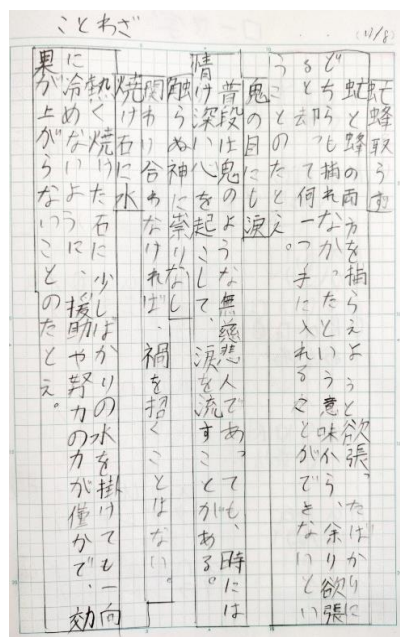 ことわざ
(11/8)
虻蜂取らず
虻と蜂の両方を捕らえようと欲張ったばかりに
どちらも捕れなかったという意味から、余り欲張
ると却って何一つ手に入れることができないとい
うことのたとえ。
鬼の目にも涙
普段は鬼のような無慈悲人であっても、時には
情け深い心を起こして、涙を流すことがある。
触らぬ神に祟りなし
関わり合わなければ、禍を招くことはない。
焼け石に水
熱く焼けた石に少しばかりの水を掛けても一向
に冷めないように、援助や努力の力が僅かで、効
果が上がらないことのたとえ。